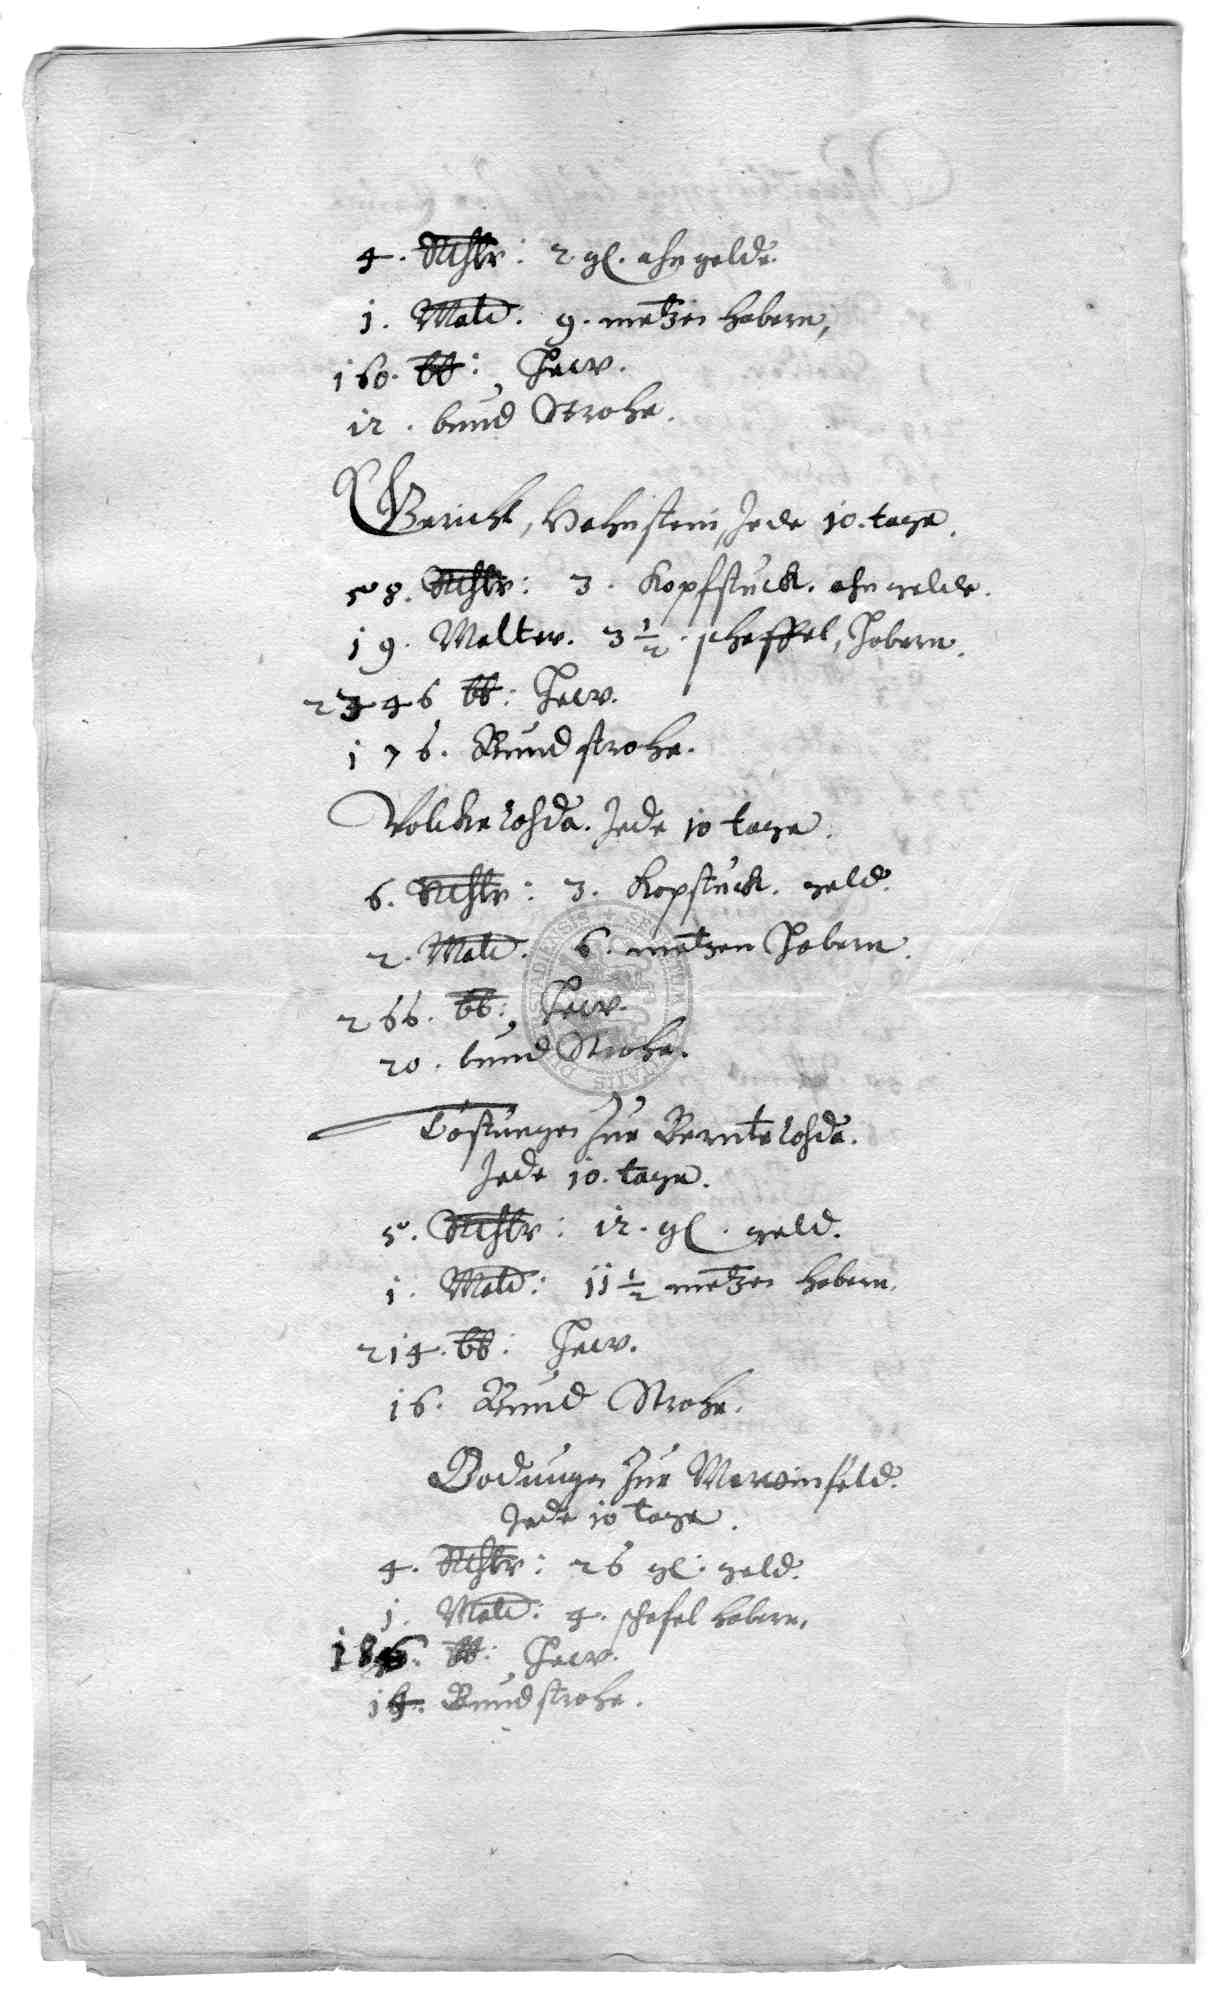 4. Rthlr: 2 gl. ahn gelde.
1. Maltr: 9. metzen habern,
160. lb: Hew.
12. bund Strohe.
Gericht, Hahnstein, Jede 10. tage.
58. Rthlr: 3. Kopfstuck. ahn gelde.
19. Malter. 3 1/2. scheffel, Habern.
2346 lb: Hew.
176. Bund strohe.
Volckelohda. Jede 10 tage.
6. Rthlr: 3. Kopstuck. geld.
2. Maltr: 6. metzen Habern.
266. lb: Hew.
20. bund Strohe.
zur Berntelohda.
Jede 10. tage.
5. Rthlr: 12. gl. geld.
1. Maltr: 11 1/2 metzen habern.
214. lb: Hew.
16. Bund Strohe.
Bodungen zur Mertinfeld.
Jede 10 tage.
4. Rthlr: 26 gl: geld.
1. Maltr: 4. schefel habern,
lb: Hew.
14. Bund strohe.